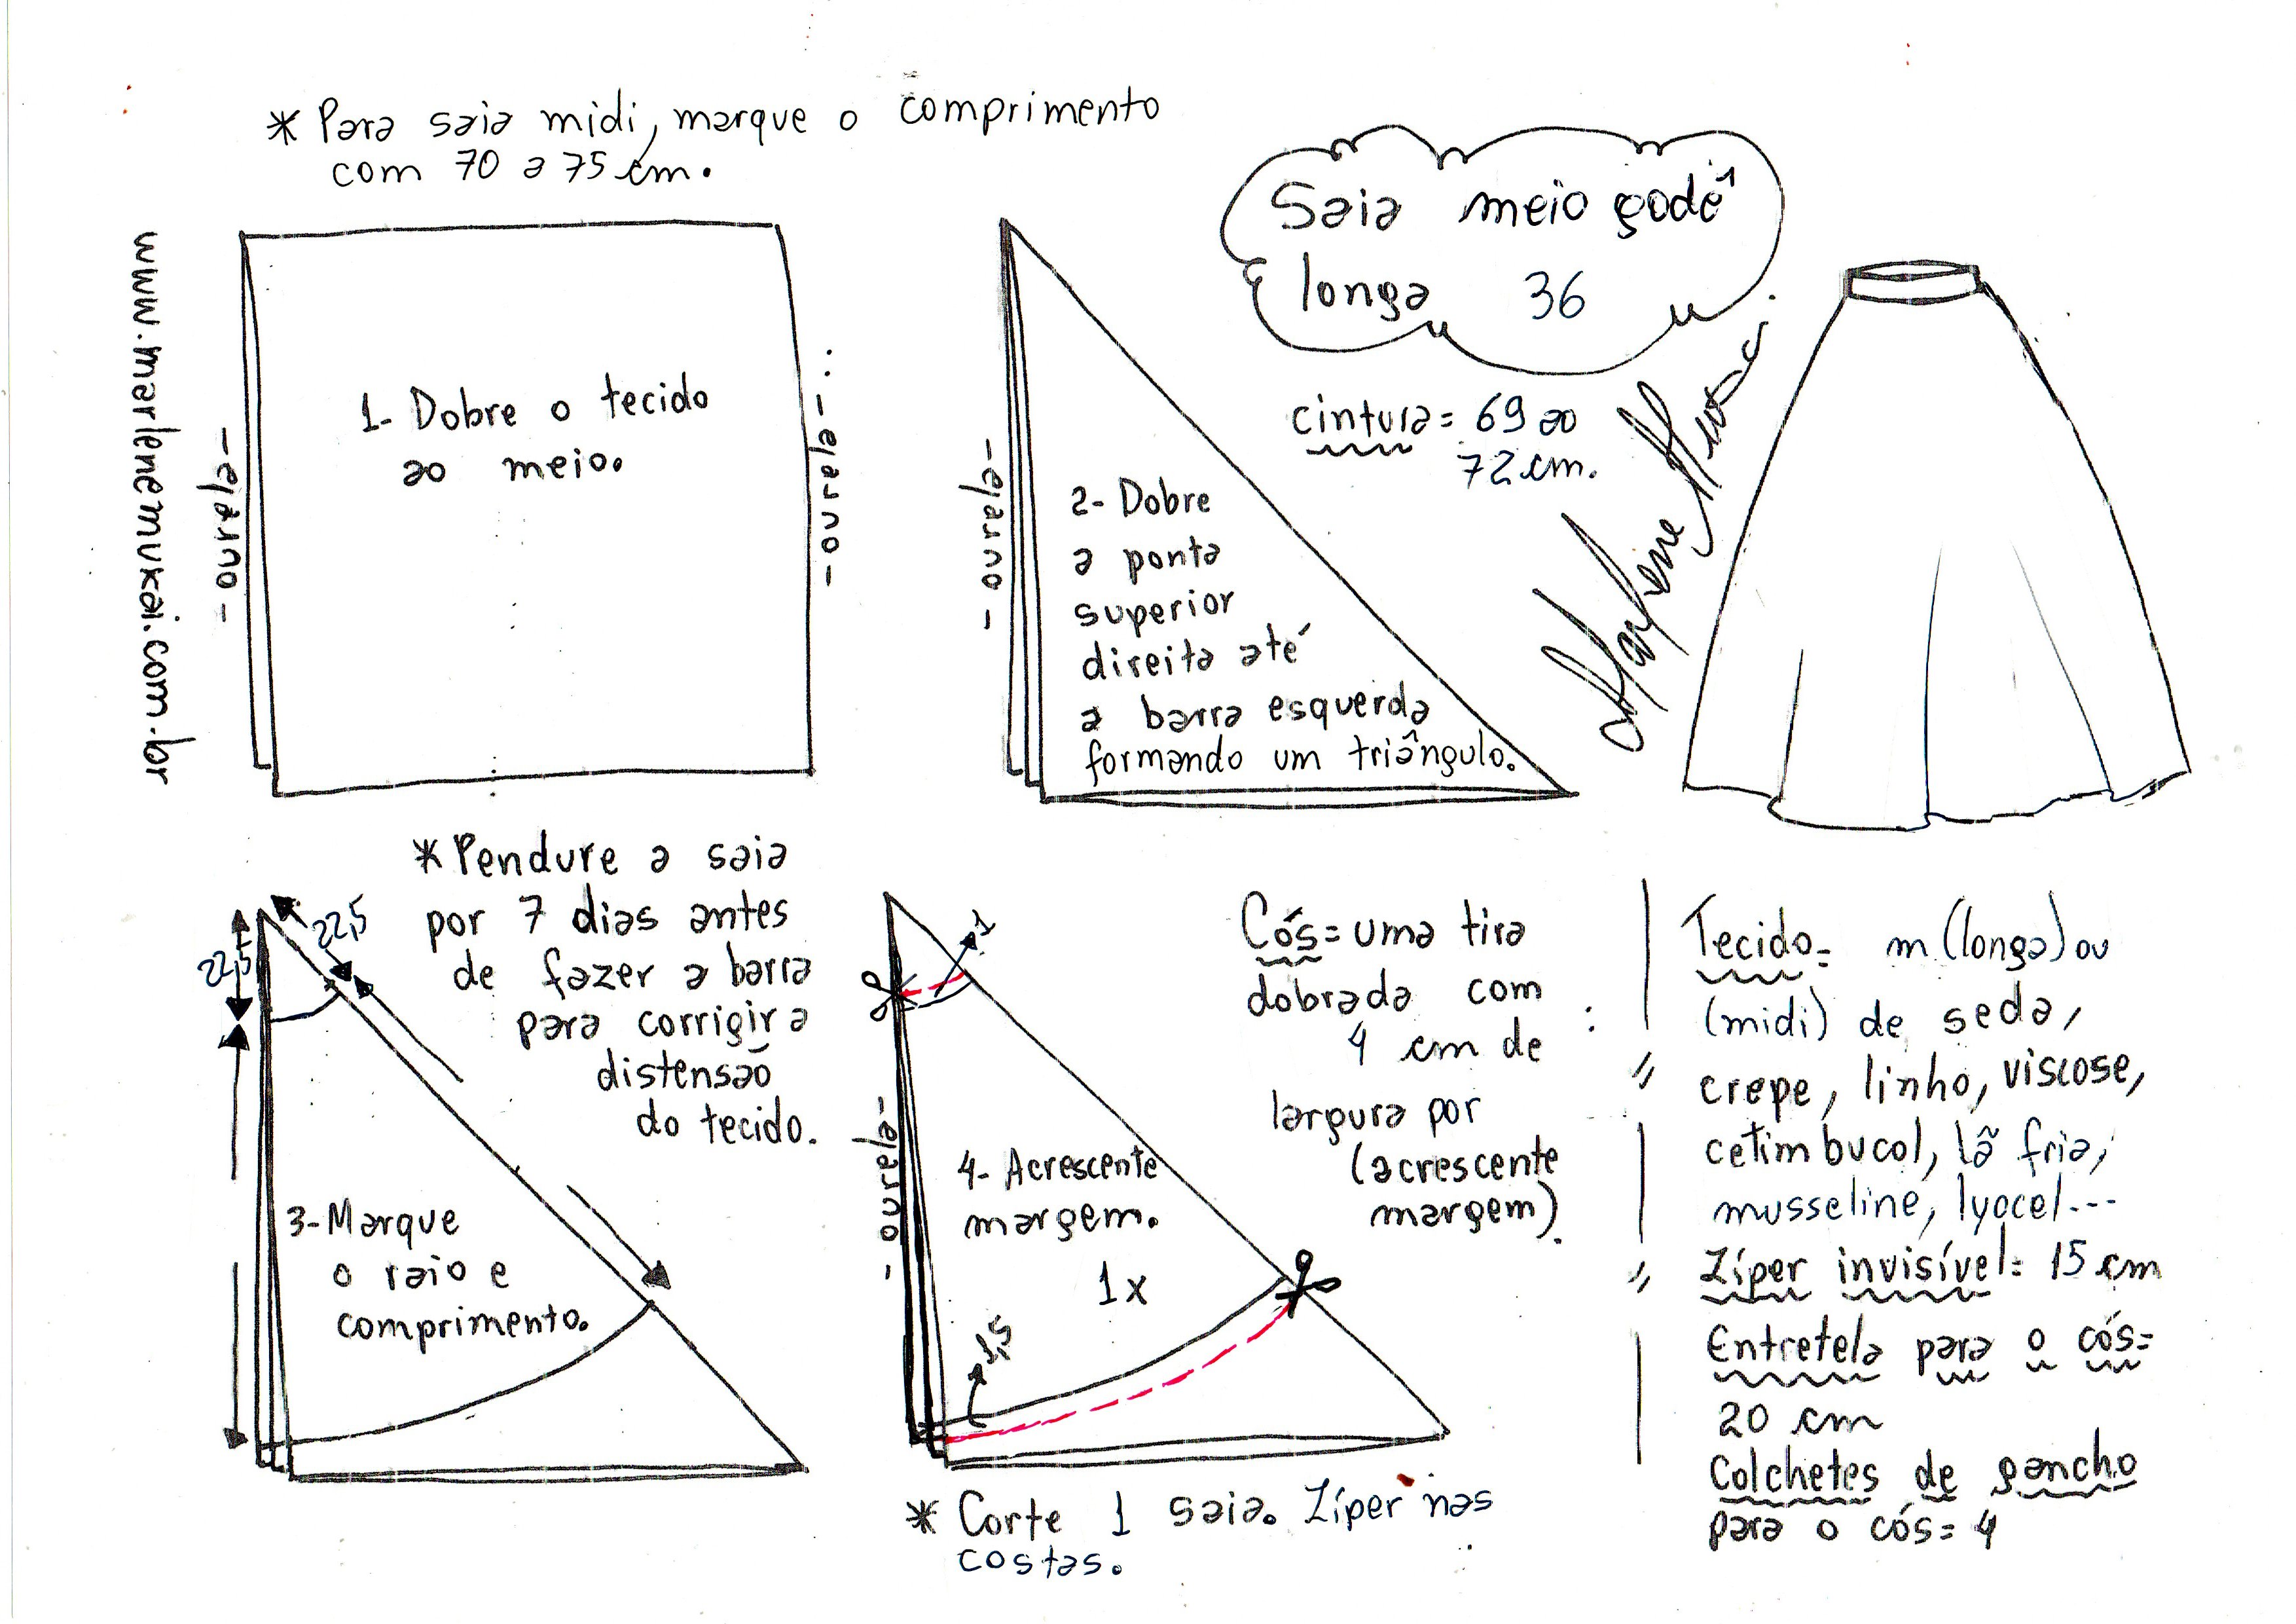 * Para saia midi, marque o comprimento
com 70 a 75 cm.
Saia meio godê
longa 36
www.marlenemukai.com.br
- ourela -
1- Dobre o tecido
ao meio.
- ourela -
- ourela -
2- Dobre
a ponta
superior
direita até
a barra esquerda
formando um triângulo.
cintura = 69 ao
72 cm.
Marlene Mukai
* Pendure a saia
por 7 dias antes
de fazer a barra
para corrigir a
distensão
do tecido.
22,5
22,5
3- Marque
o raio e
comprimento.
1
- ourela -
4- Acrescente
margem.
1x
1,5
* Corte 1 saia. Zíper nas
costas.
Cós = uma tira
dobrada com
4 cm de
largura por
(acrescente
margem).
Tecido = m (longa) ou
(midi) de seda,
crepe, linho, viscose,
cetim bucol, lã fria,
musseline, lyocel...
Zíper invisível = 15 cm
Entretela para o cós =
20 cm
Colchetes de gancho
para o cós = 4